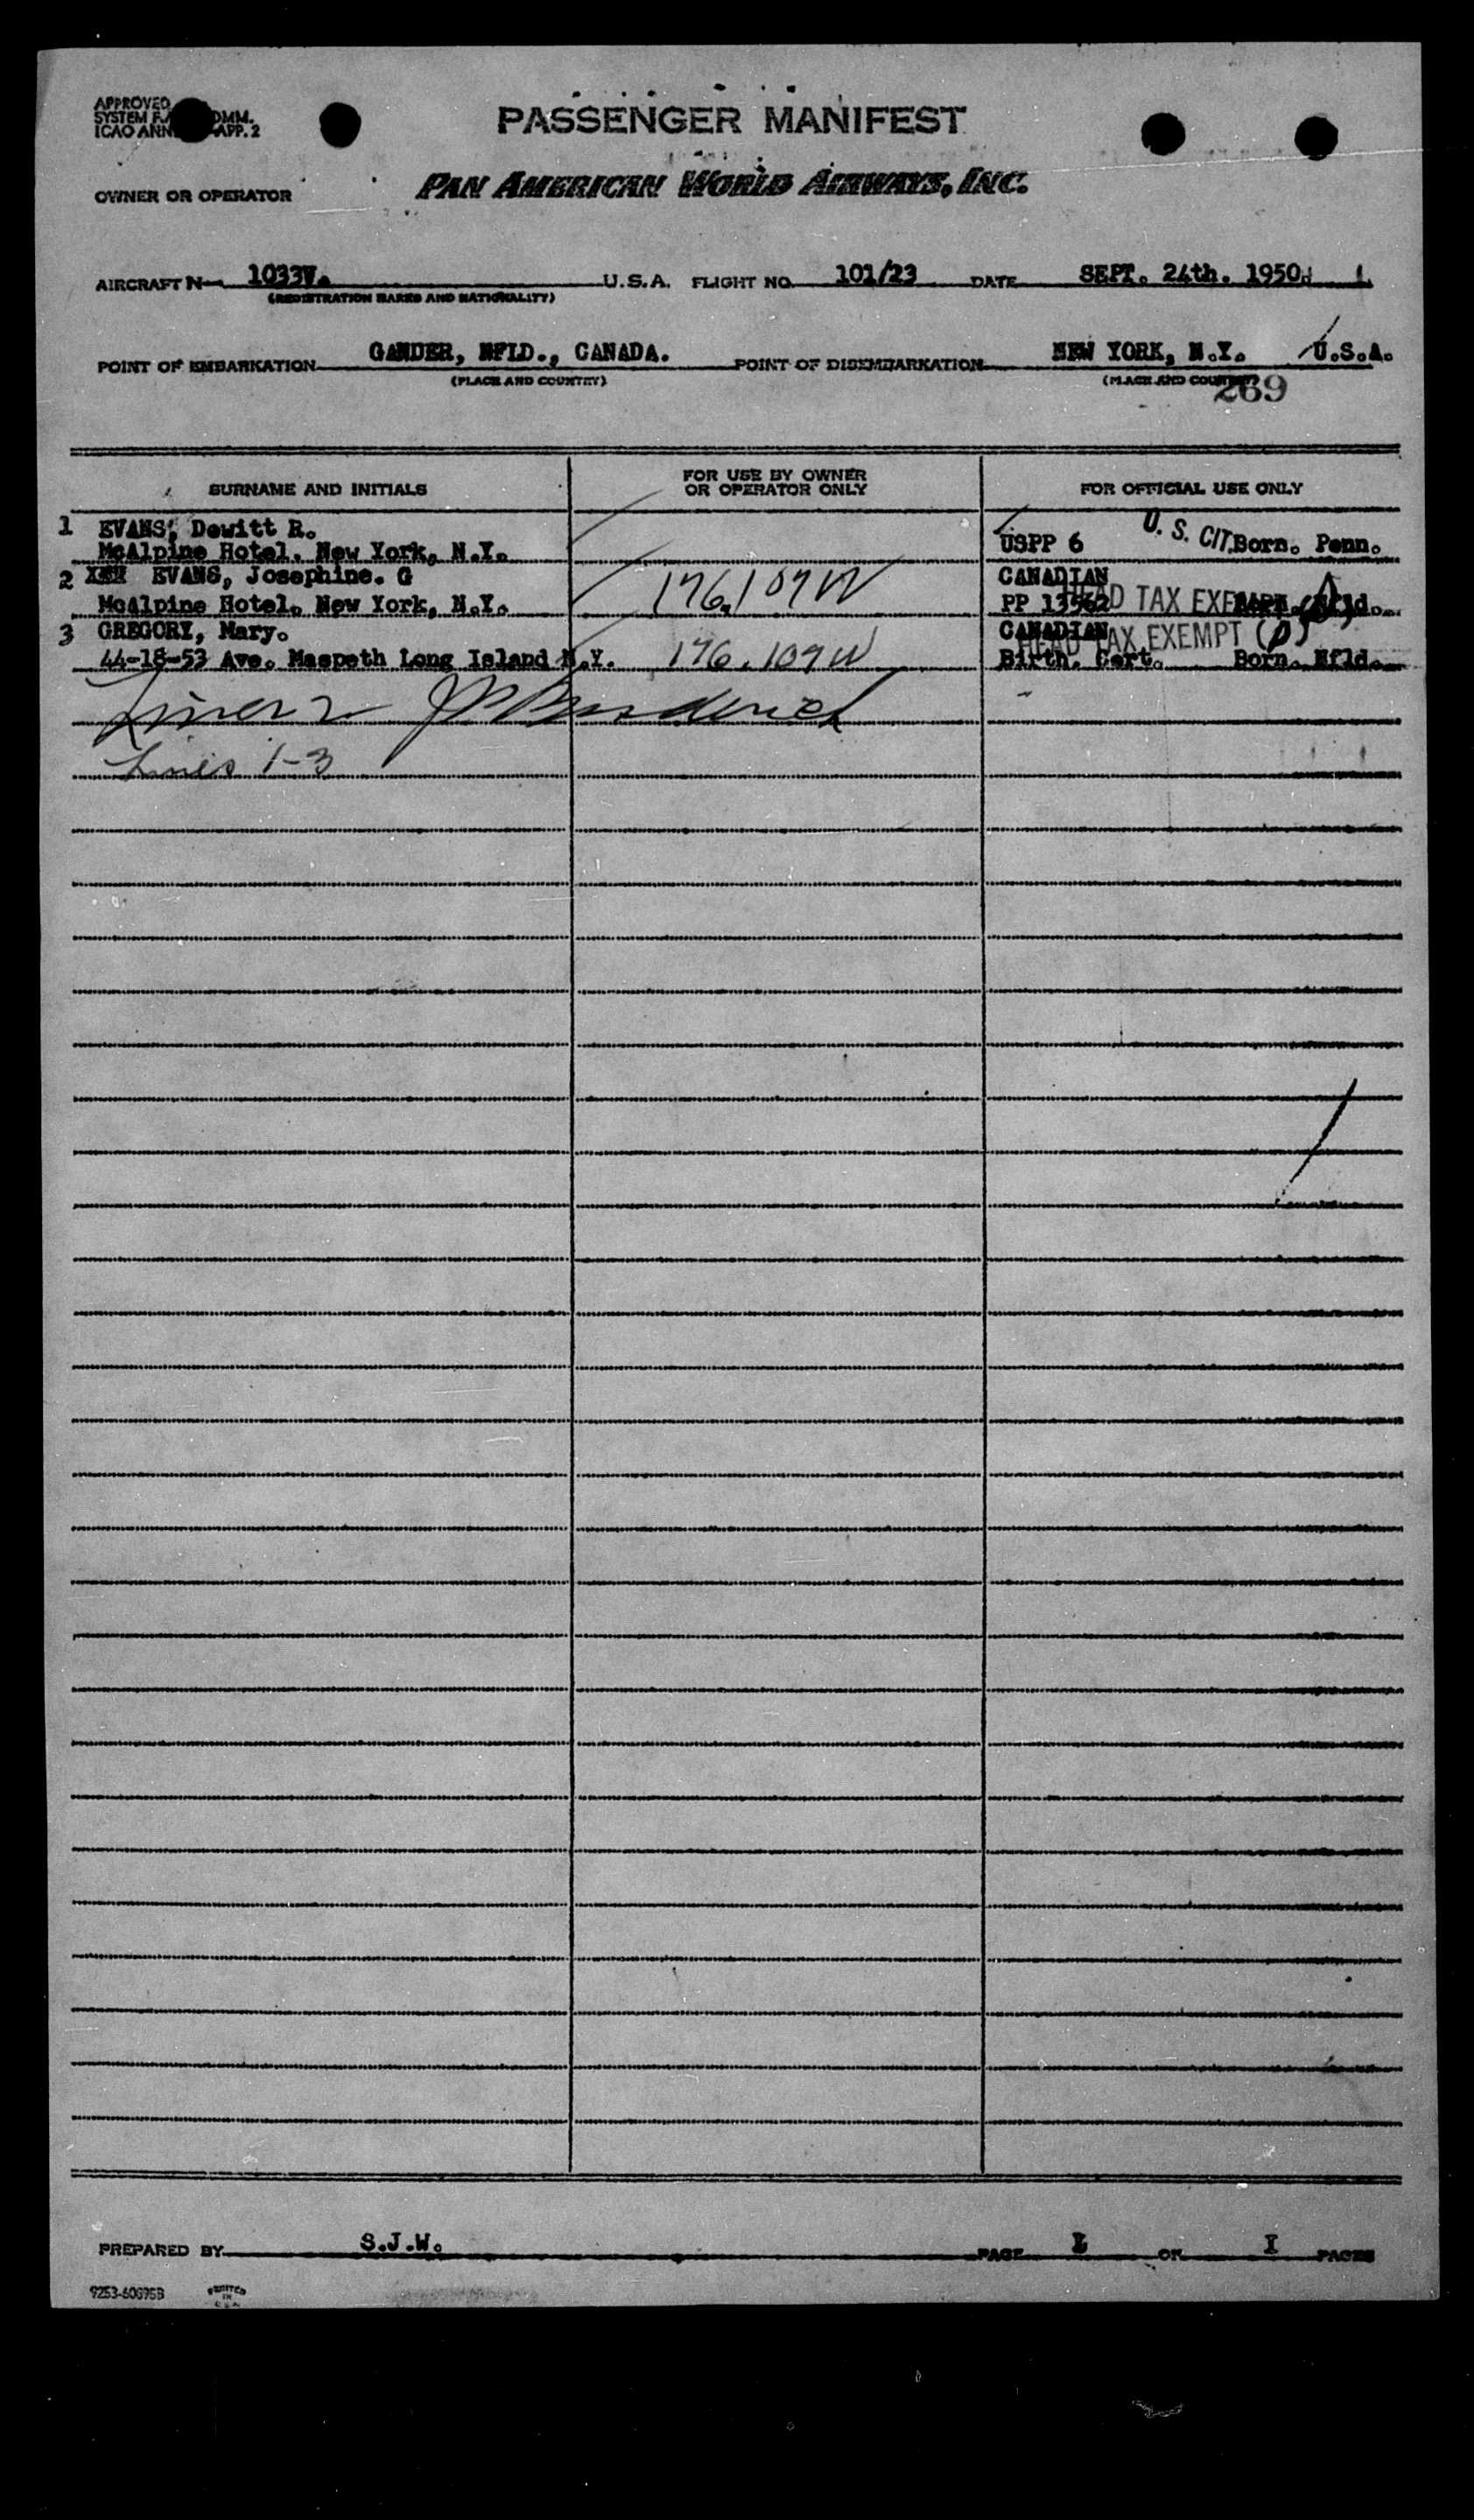 APPROVED
SYSTEM F. OMM.
ICAO ANN APP. 2
PASSENGER MANIFEST
OWNER OR OPERATOR PAN AMERICAN WORLD AIRWAYS, INC.
AIRCRAFT N— 1033V. U.S.A. FLIGHT NO. 101/23 DATE SEPT. 24th. 1950.
(REGISTRATION MARKS AND NATIONALITY)
POINT OF EMBARKATION GANDER, NFLD., CANADA. POINT OF DISEMBARKATION NEW YORK, N.Y. U.S.A.
(PLACE AND COUNTRY) (PLACE AND COUNTRY)
269
SURNAME AND INITIALS FOR USE BY OWNER OR OPERATOR ONLY FOR OFFICIAL USE ONLY
1 EVANS, Dewitt R. U. S. CIT.
McAlpine Hotel. New York, N.Y. USPP 6 Born. Penn.
2 EVANS, Josephine. G CANADIAN
McAlpine Hotel. New York, N.Y. 176.107W PP 13562 HEAD TAX EXEMPT Born. Nfld.
3 GREGORY, Mary. CANADIAN HEAD TAX EXEMPT (D)
44-18-53 Ave. Maspeth Long Island N.Y. 176.107W Birth. Cert. Born. Nfld.
Lines 1-3
PREPARED BY S.J.W. PAGE 1 OF I PAGES
9253-60695B PRINTED IN U.S.A.